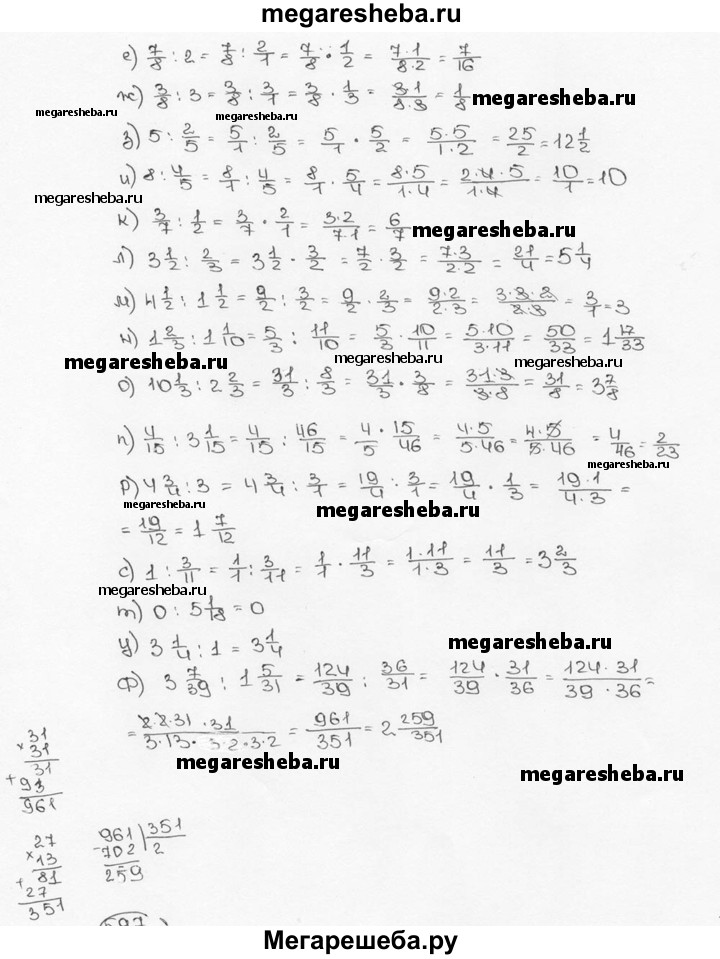 megaresheba.ru
е) 7/8 : 2 = 7/8 : 2/1 = 7/8 · 1/2 = 7·1/8·2 = 7/16
ж) 3/8 : 3 = 3/8 : 3/1 = 3/8 · 1/3 = 3·1/8·3 = 1/8 megaresheba.ru
megaresheba.ru megaresheba.ru
з) 5 : 2/5 = 5/1 : 2/5 = 5/1 · 5/2 = 5·5/1·2 = 25/2 = 12 1/2
и) 8 : 4/5 = 8/1 : 4/5 = 8/1 · 5/4 = 8·5/1·4 = 2·4·5/1·4 = 10/1 = 10
megaresheba.ru
к) 3/7 : 1/2 = 3/7 · 2/1 = 3·2/7·1 = 6/7 megaresheba.ru
л) 3 1/2 : 2/3 = 3 1/2 · 3/2 = 7/2 · 3/2 = 7·3/2·2 = 21/4 = 5 1/4
м) 4 1/2 : 1 1/2 = 9/2 : 3/2 = 9/2 · 2/3 = 9·2/2·3 = 3·3·2/2·3 = 3/1 = 3
н) 1 2/3 : 1 1/10 = 5/3 : 11/10 = 5/3 · 10/11 = 5·10/3·11 = 50/33 = 1 17/33
megaresheba.ru megaresheba.ru megaresheba.ru
о) 10 1/3 : 2 2/3 = 31/3 : 8/3 = 31/3 · 3/8 = 31·3/3·8 = 31/8 = 3 7/8
п) 4/15 : 3 1/15 = 4/15 : 46/15 = 4/5 · 15/46 = 4·5/5·46 = 4·5/5·46 = 4/46 = 2/23
megaresheba.ru
р) 4 3/4 : 3 = 4 3/4 : 3/1 = 19/4 : 3/1 = 19/4 · 1/3 = 19·1/4·3 =
megaresheba.ru megaresheba.ru
= 19/12 = 1 7/12
с) 1 : 3/11 = 1/1 : 3/11 = 1/1 · 11/3 = 1·11/1·3 = 11/3 = 3 2/3
megaresheba.ru
т) 0 : 5 1/18 = 0
у) 3 1/4 : 1 = 3 1/4 megaresheba.ru
ф) 3 7/39 : 1 5/31 = 124/39 : 36/31 = 124/39 · 31/36 = 124·31/39·36 =
= 2·2·31·31/3·13·3·2·3·2 = 961/351 = 2 259/351
megaresheba.ru megaresheba.ru
31
× 31
31
+ 93
961
27
× 13
81
+ 27
351
961 351
- 702 2
259
Мегарешеба.ру